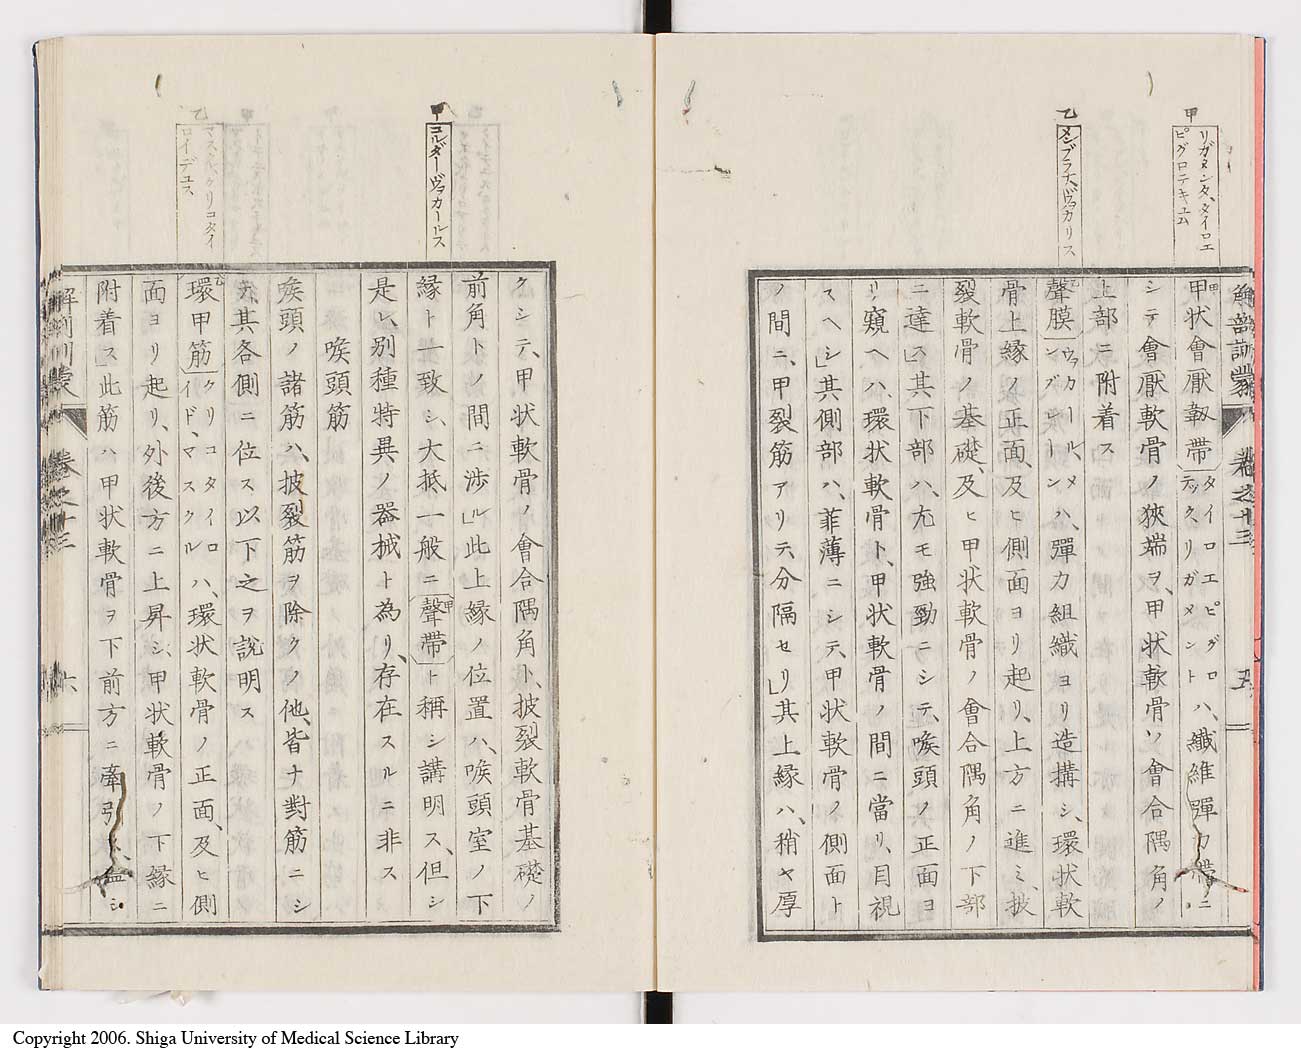 甲
リガメンタ、タイロエ
ピグロテキユム
乙
メンブラナ、ヴァカリス
解剖訓蒙
卷之十三
五
甲状會厭韌帶(タイロエピグロテック、リガメント)ハ、纖維彈力帶ノニ
シテ會厭軟骨ノ狹端ヲ、甲状軟骨ノ會合隅角ノ
上部ニ附着ス
聲膜(ヴァカール、メンブレーン)ハ、彈力組織ヨリ造搆シ、環状軟
骨上縁ノ正面、及ヒ側面ヨリ起リ、上方ニ進ミ、披
裂軟骨ノ基礎、及ヒ甲状軟骨ノ會合隅角ノ下部
ニ達ス」其下部ハ、尤モ強勁ニシテ、喉頭ノ正面ヨ
リ窺ヘハ、環状軟骨ト、甲状軟骨ノ間ニ當リ、目視
スヘシ」其側部ハ、菲薄ニシテ、甲状軟骨ノ側面ト
ノ間ニ、甲裂筋アリテ、分隔セリ」其上縁ハ、稍ヤ厚
甲
コルダー、ヴァカールス
乙
マスキル、クリコタイ
ロイデユス
クシテ、甲状軟骨ノ會合隅角ト、披裂軟骨基礎ノ
前角トノ間ニ渉ル」此上縁ノ位置ハ、喉頭室ノ下
縁ト一致シ、大抵一般ニ(聲帶)ト稱シ講明ス、但シ
是レ、別種特異ノ器械ト為リ、存在スルニ非ス
喉頭筋
喉頭ノ諸筋ハ、披裂筋ヲ除クノ他、皆ナ對筋ニシ
テ其各側ニ位ス以下之ヲ説明ス
環甲筋(クリコタイロイド、マスクル)ハ、環状軟骨ノ正面、及ヒ側
面ヨリ起リ、外後方ニ上昇シ、甲状軟骨ノ下縁ニ
附着ス」此筋ハ甲状軟骨ヲ下前方ニ牽引
解剖訓蒙
卷之十三
六
Copyright 2006. Shiga University of Medical Science Library